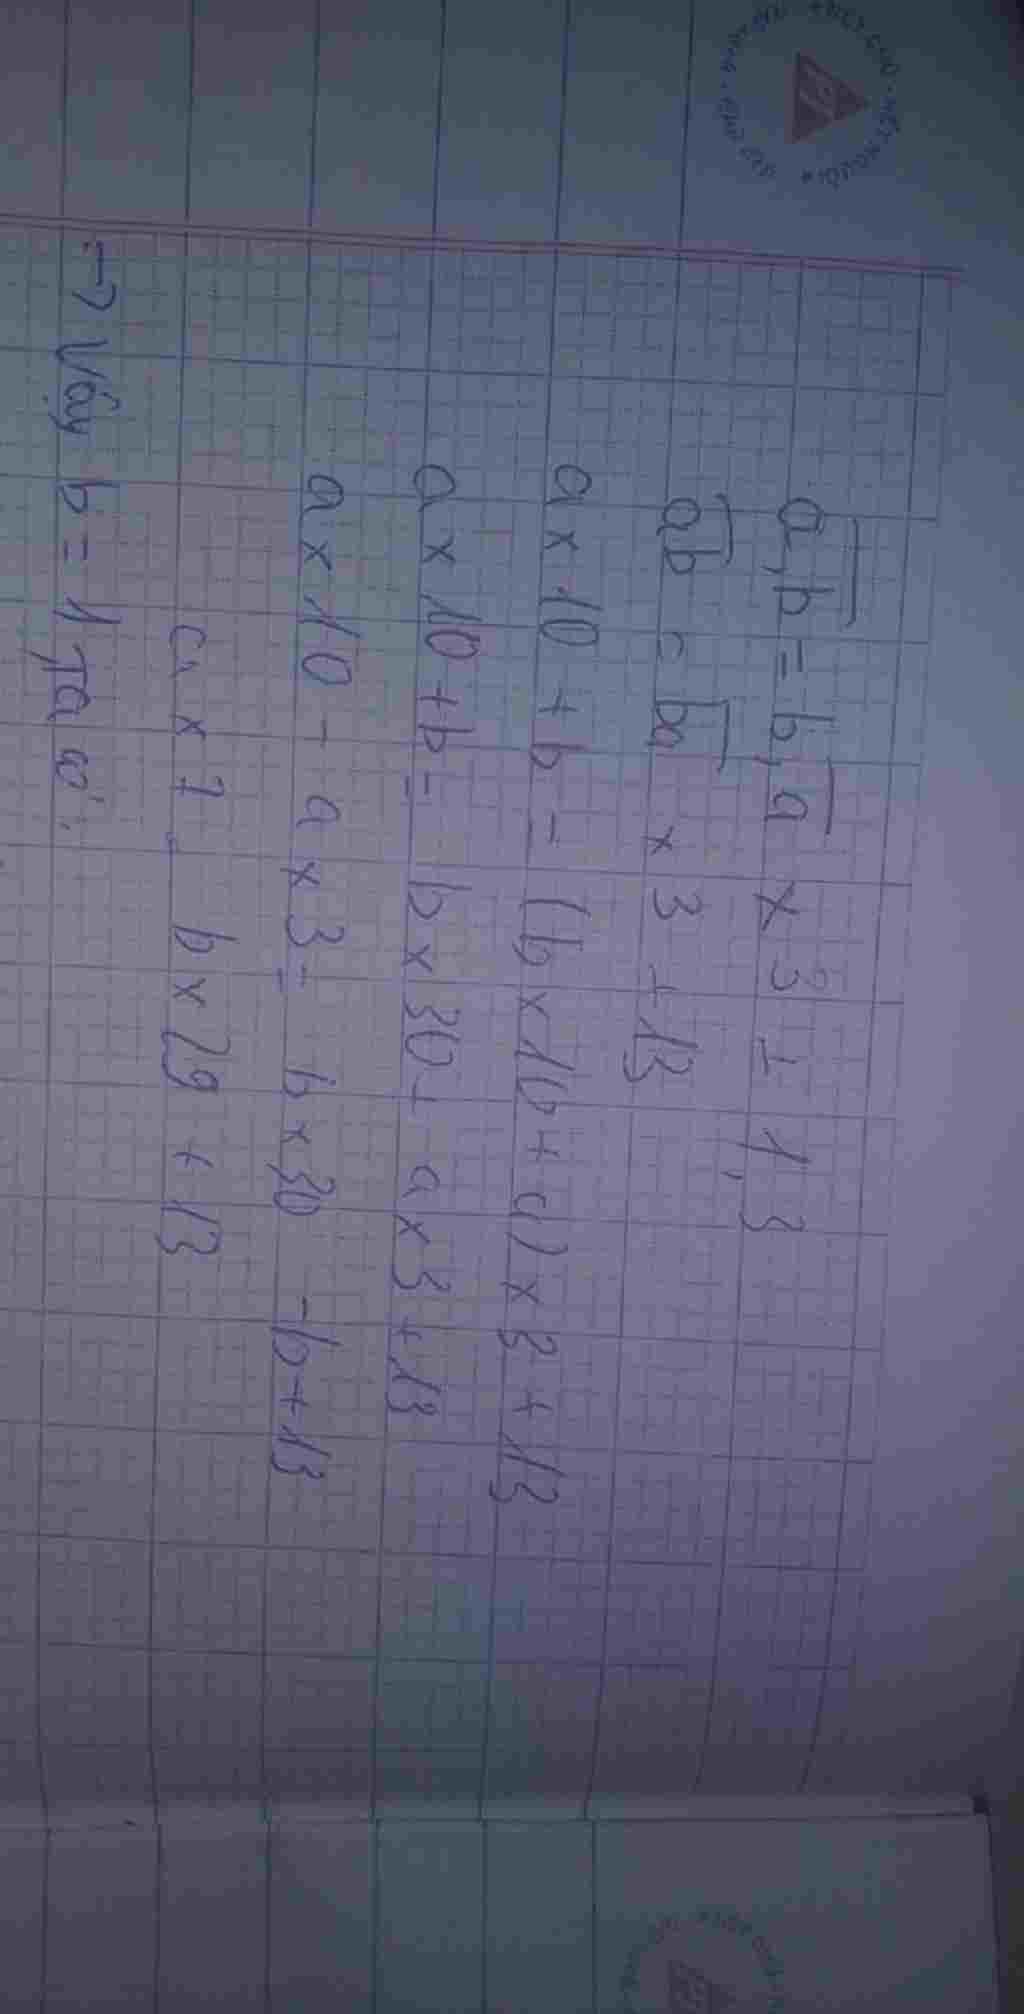 a,b = b,a x 3 + 1,3
ab = ba x 3 + 13
a x 10 + b = (b x 10 + a) x 3 + 13
a x 10 + b = b x 30 + a x 3 + 13
a x 10 - a x 3 = b x 30 - b + 13
a x 7 = b x 29 + 13
→ Vậy b = 1 Ta có: